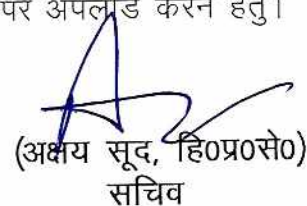 पर अपलोड करने हेतु।
(अक्षय सूद, हि0प्र0से0)
सचिव